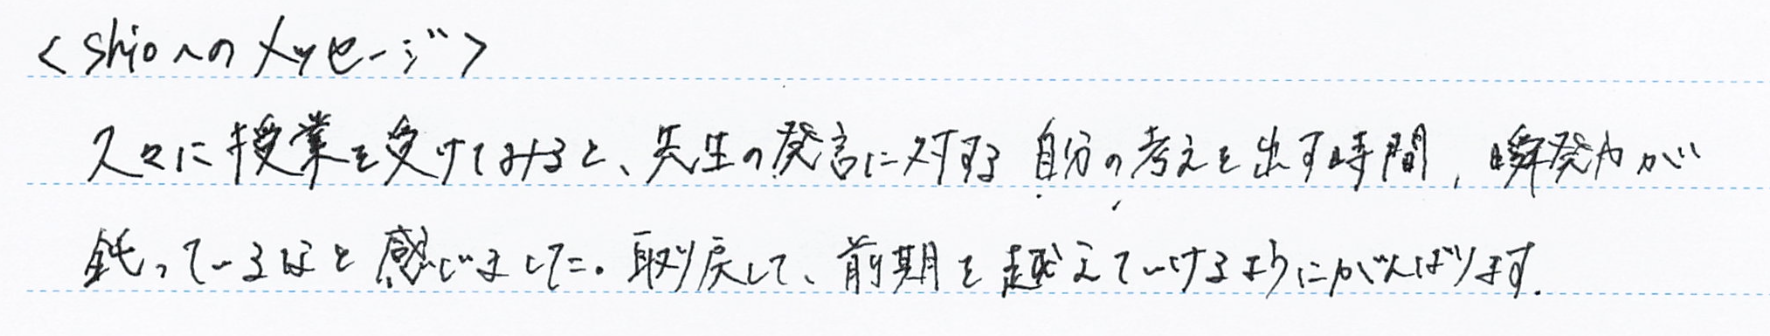 <shioへのメッセージ>
久々に授業を受けてみると、先生の発言に対する自分の考えを出す時間，瞬発力が
鈍っているなと感じました。取り戻して、前期を越えていけるようにがんばります.